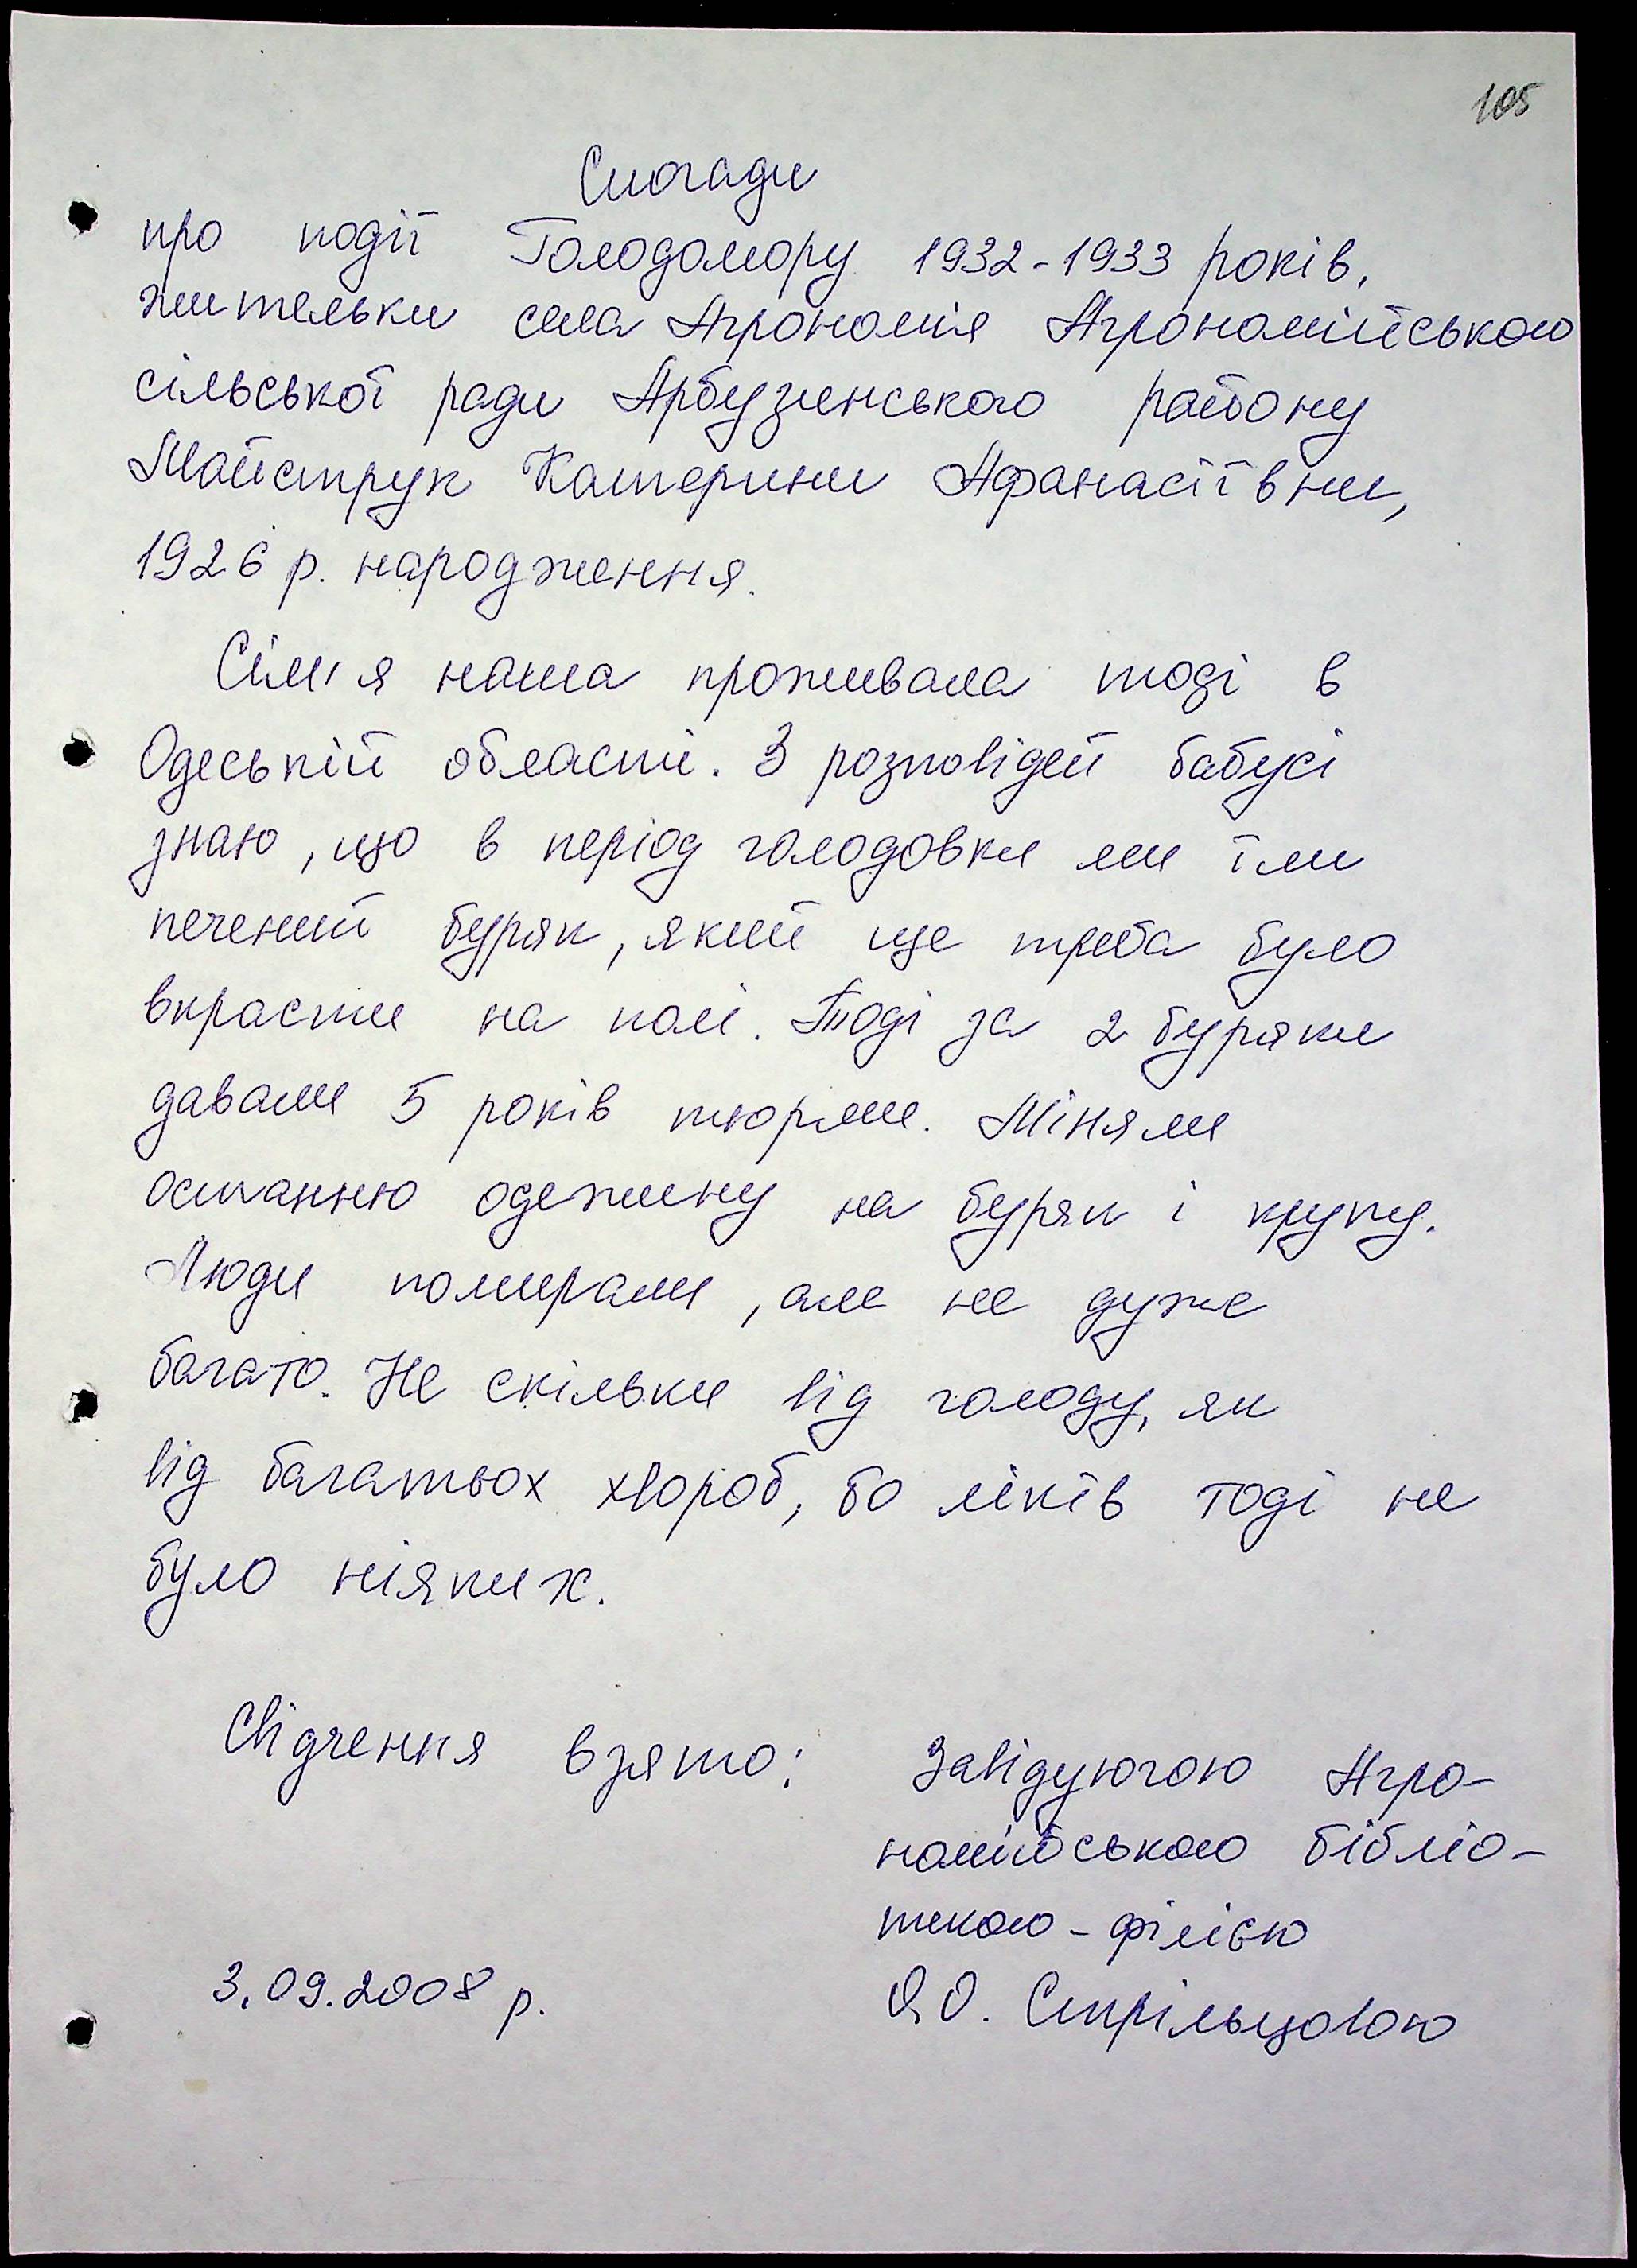 105
Спогади
про події Голодомору 1932-1933 років,
жительки села Агрономія Агрономійською
сільської ради Арбузинського району
Майструк Катерини Афанасіївни,
1926 р. народження.
Сім'я наша проживала тоді в
Одеській області. З розповідей бабусі
знаю, що в період голодовки ми їли
печений буряк, який ще треба було
вкрасти на полі. Тоді за 2 буряки
давали 5 років тюрми. Міняли
останню одежину на буряк і крупу.
Люди помирали, але не дуже
багато. Не скільки від голоду, як
від багатьох хвороб, бо ліків тоді не
було ніяких.
Свідчення взято: Завідуючою Агро-
номійською бібліо-
текою-філією
3.09.2008 р. О.О. Стрільцовою